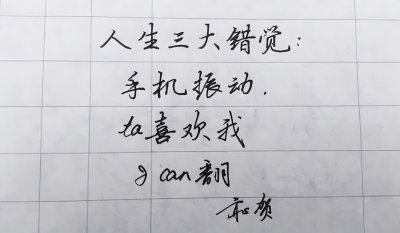 人生三大错觉：
手机振动.
ta喜欢我
I can翻